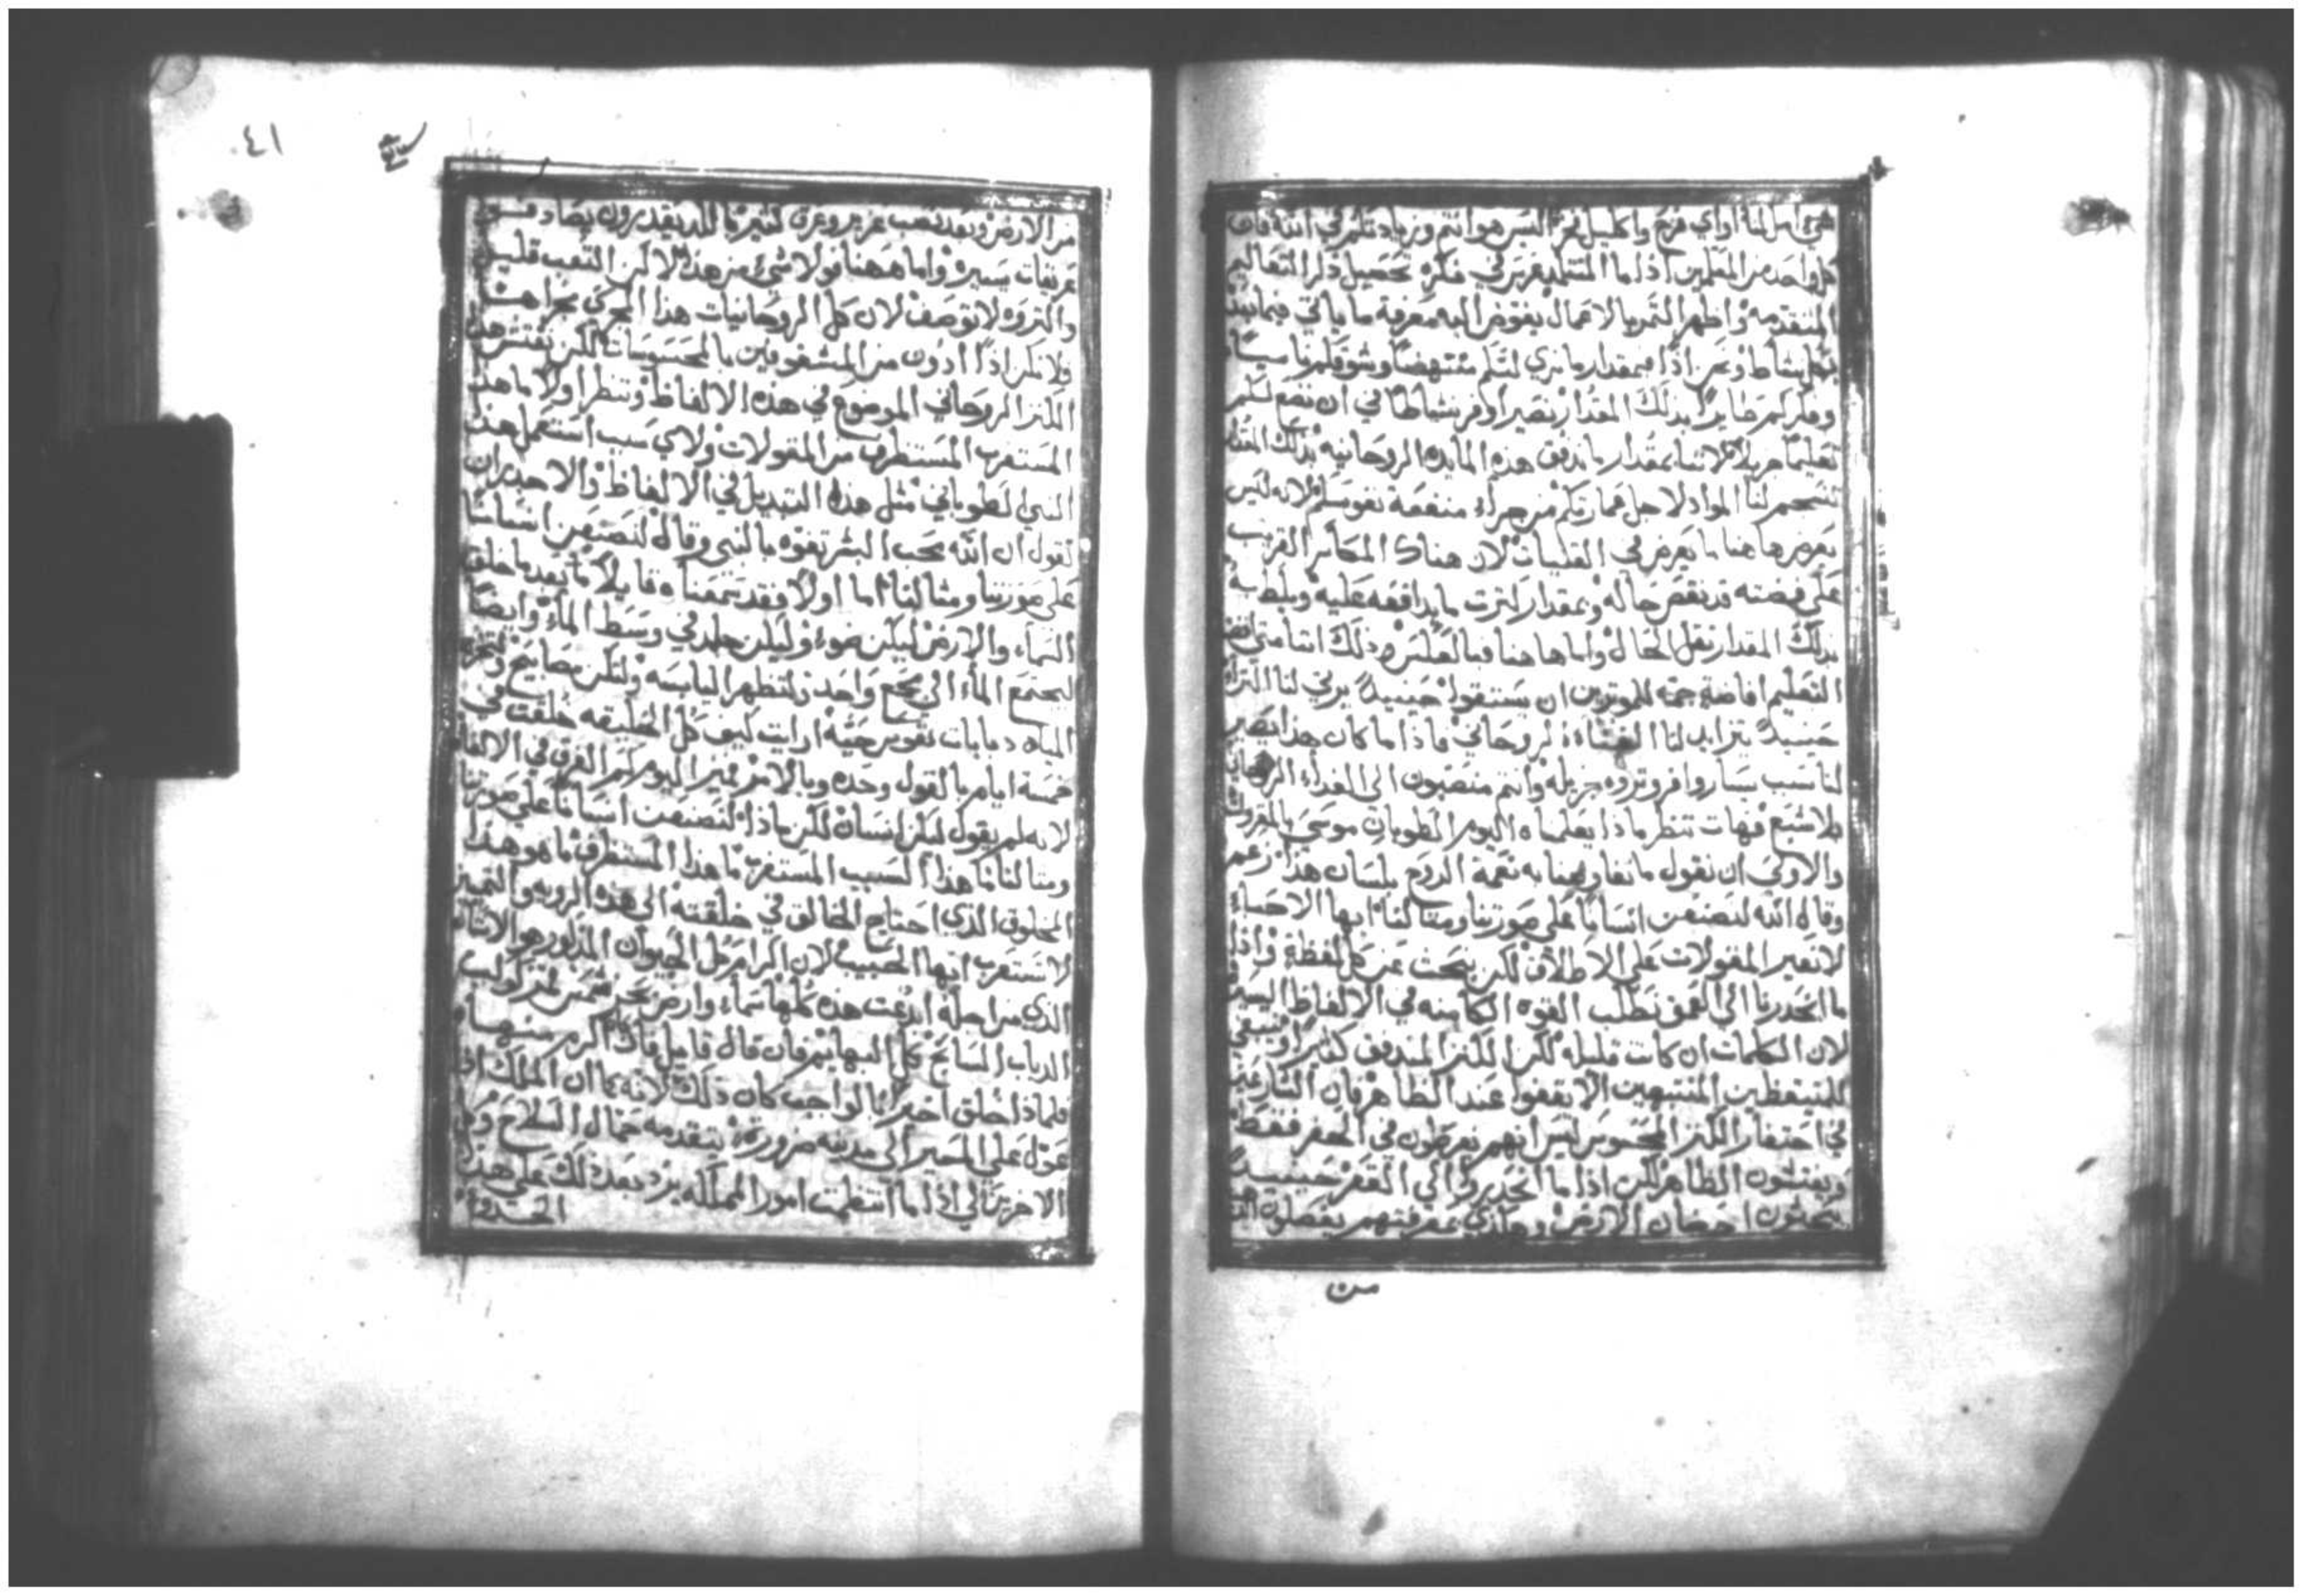 شي املنا او اي فرح واكليل فخر اليس هو انتم وزيادتكم في الله فان
كل واحد من المعلمين اذا ما التلميذ في فكره تحصيل ذكر التعاليم
المتقدمه واظهر الثمر بالاعمال يفوض اليه معرفة ما ياتي فيما بعد
بنشاط ونحن اذا بمقدار ما نري لتكم منتهضا وشوقكم ناميا
وفكركم طايرا بذلك المقدار نصير اوفر نشاطا في ان نضع لكم
تعليما جزيلا لاننا بمقدار ما ندفق هذه المايده الروحانيه بذلك المقدار
تنسجم لنا المواد لاجل عمارتكم من جراء منفعة نفوسكم لانه ليس
يعرض هاهنا ما يعرض في القنيات لان هناك المكاثر القريب
علي فضته قد نقص حاله وبمقدار كثرت ما يدافعه عليه ويلطب به
بذلك المقدار نقل الحال واما هاهنا فبالعكس وذلك اننا متي افضنا
التعليم افاضة جمة للموثرين ان يستقوا حينيذ يربي لنا الثراء
حينيذ يتزايد لنا الغناء الروحاني فاذا ما كان هذا يصير
لنا سبب يسار وافر وثروه جزيله وانتم منصبون الي الغذاء الروحاني
بلا شبع فهات ننظر ماذا يعلمناه اليوم الطوبان موسي بالمقروات
والاولي ان نقول ما تفاوضنا به نعمة الروح بلسان هذا زعم
وقال الله لنصنعن انسانا علي صورتنا ومثالنا ايها الاحباء
لا نعبر المقولات علي الاطلاق لكن نبحث عن كل لفظة واذا
ما انحدرنا الي العمق نطلب القوه الكامنه في الالفاظ اليسيره
لان الكلمات ان كانت قليله لكن الكنز المندفق كثير وينبغي
للمتيقظين المنتبهين الا يقفوا عند الظاهر فان الشارعين
في احتفار الكنز المحسوس ليس انهم يفرطون في الحفر فقط
ويفتشون الظاهر لكن اذا ما انحدروا الي القعر حينيذ
يبحثون احضان الارض وحاذي بمعرفتهم يفصلون
من
٤١
سابع
من الارض وبعد تعب غزير وعرق كثير بالكد يقدرون يصادفون
عريقات يسيره واما ههنا فولا شي من هذه لا كن التعب قليل
والثروه لا توصف لان كل الروحانيات هذا المجري مجراها
فلا نكن اذا ادون من المشغوفين بالمحسوسات لكن نفتش هذا
الكنز الروحاني الموضوع في هذه الالفاظ وننظر اولا ما هذا
المستغرب المستطرف من المقولات ولاي سبب استعمل هذا
النبي الطوباني مثل هذا التبديل في الالفاظ والاجدر ان
نقول ان الله محب البشر تفوه بالنبي وقال لنصنعن انسانا
علي صورتنا ومثالنا اما اولا فقد سمعناه قايلا بعد ما خلق
السماء والارض ليكن ضوء وليكن جلد في وسط الماء وايضا
ليجتمع الماء الي مجمع واحد ولتظهر اليابسه ولتكن مصابيح ولتخرج
المياه دبابات نفوس حيه ارايت كيف كل الخليقه خلقت في
خمسة ايام بالقول وحده وبالامر فميز اليوم كم الفرق في الالفاظ
لانه لم يقول ليكن انسان لكن ماذا لنصنعن انسانا علي صورتنا
ومثالنا ما هذا السبب المستغرب ما هذا المستطرف ما هو هذا
المخلوق الذي احتاج الخالق في خلقته الي هذه الرويه والتمييز
لا تستغرب ايها الحبيب لان اكرام كل الحيوان المذكور هو الانسان
الذي من اجله ابدعت هذه كلها سماء وارض بحر شمس قمر كواكب
الدباب السابح كل البهايم فان قال قايل فان اكرم منها
فلماذا خلق اخيرا بالواجب كان ذلك لانه كما ان الملك اذا
عول علي المصير الي مدينه ضرورة يتقدمه حمال السلاح وكل
الاخرين لكي اذا ما انتظمت امور المملكه يرد بعد ذلك علي هذا
الحذو